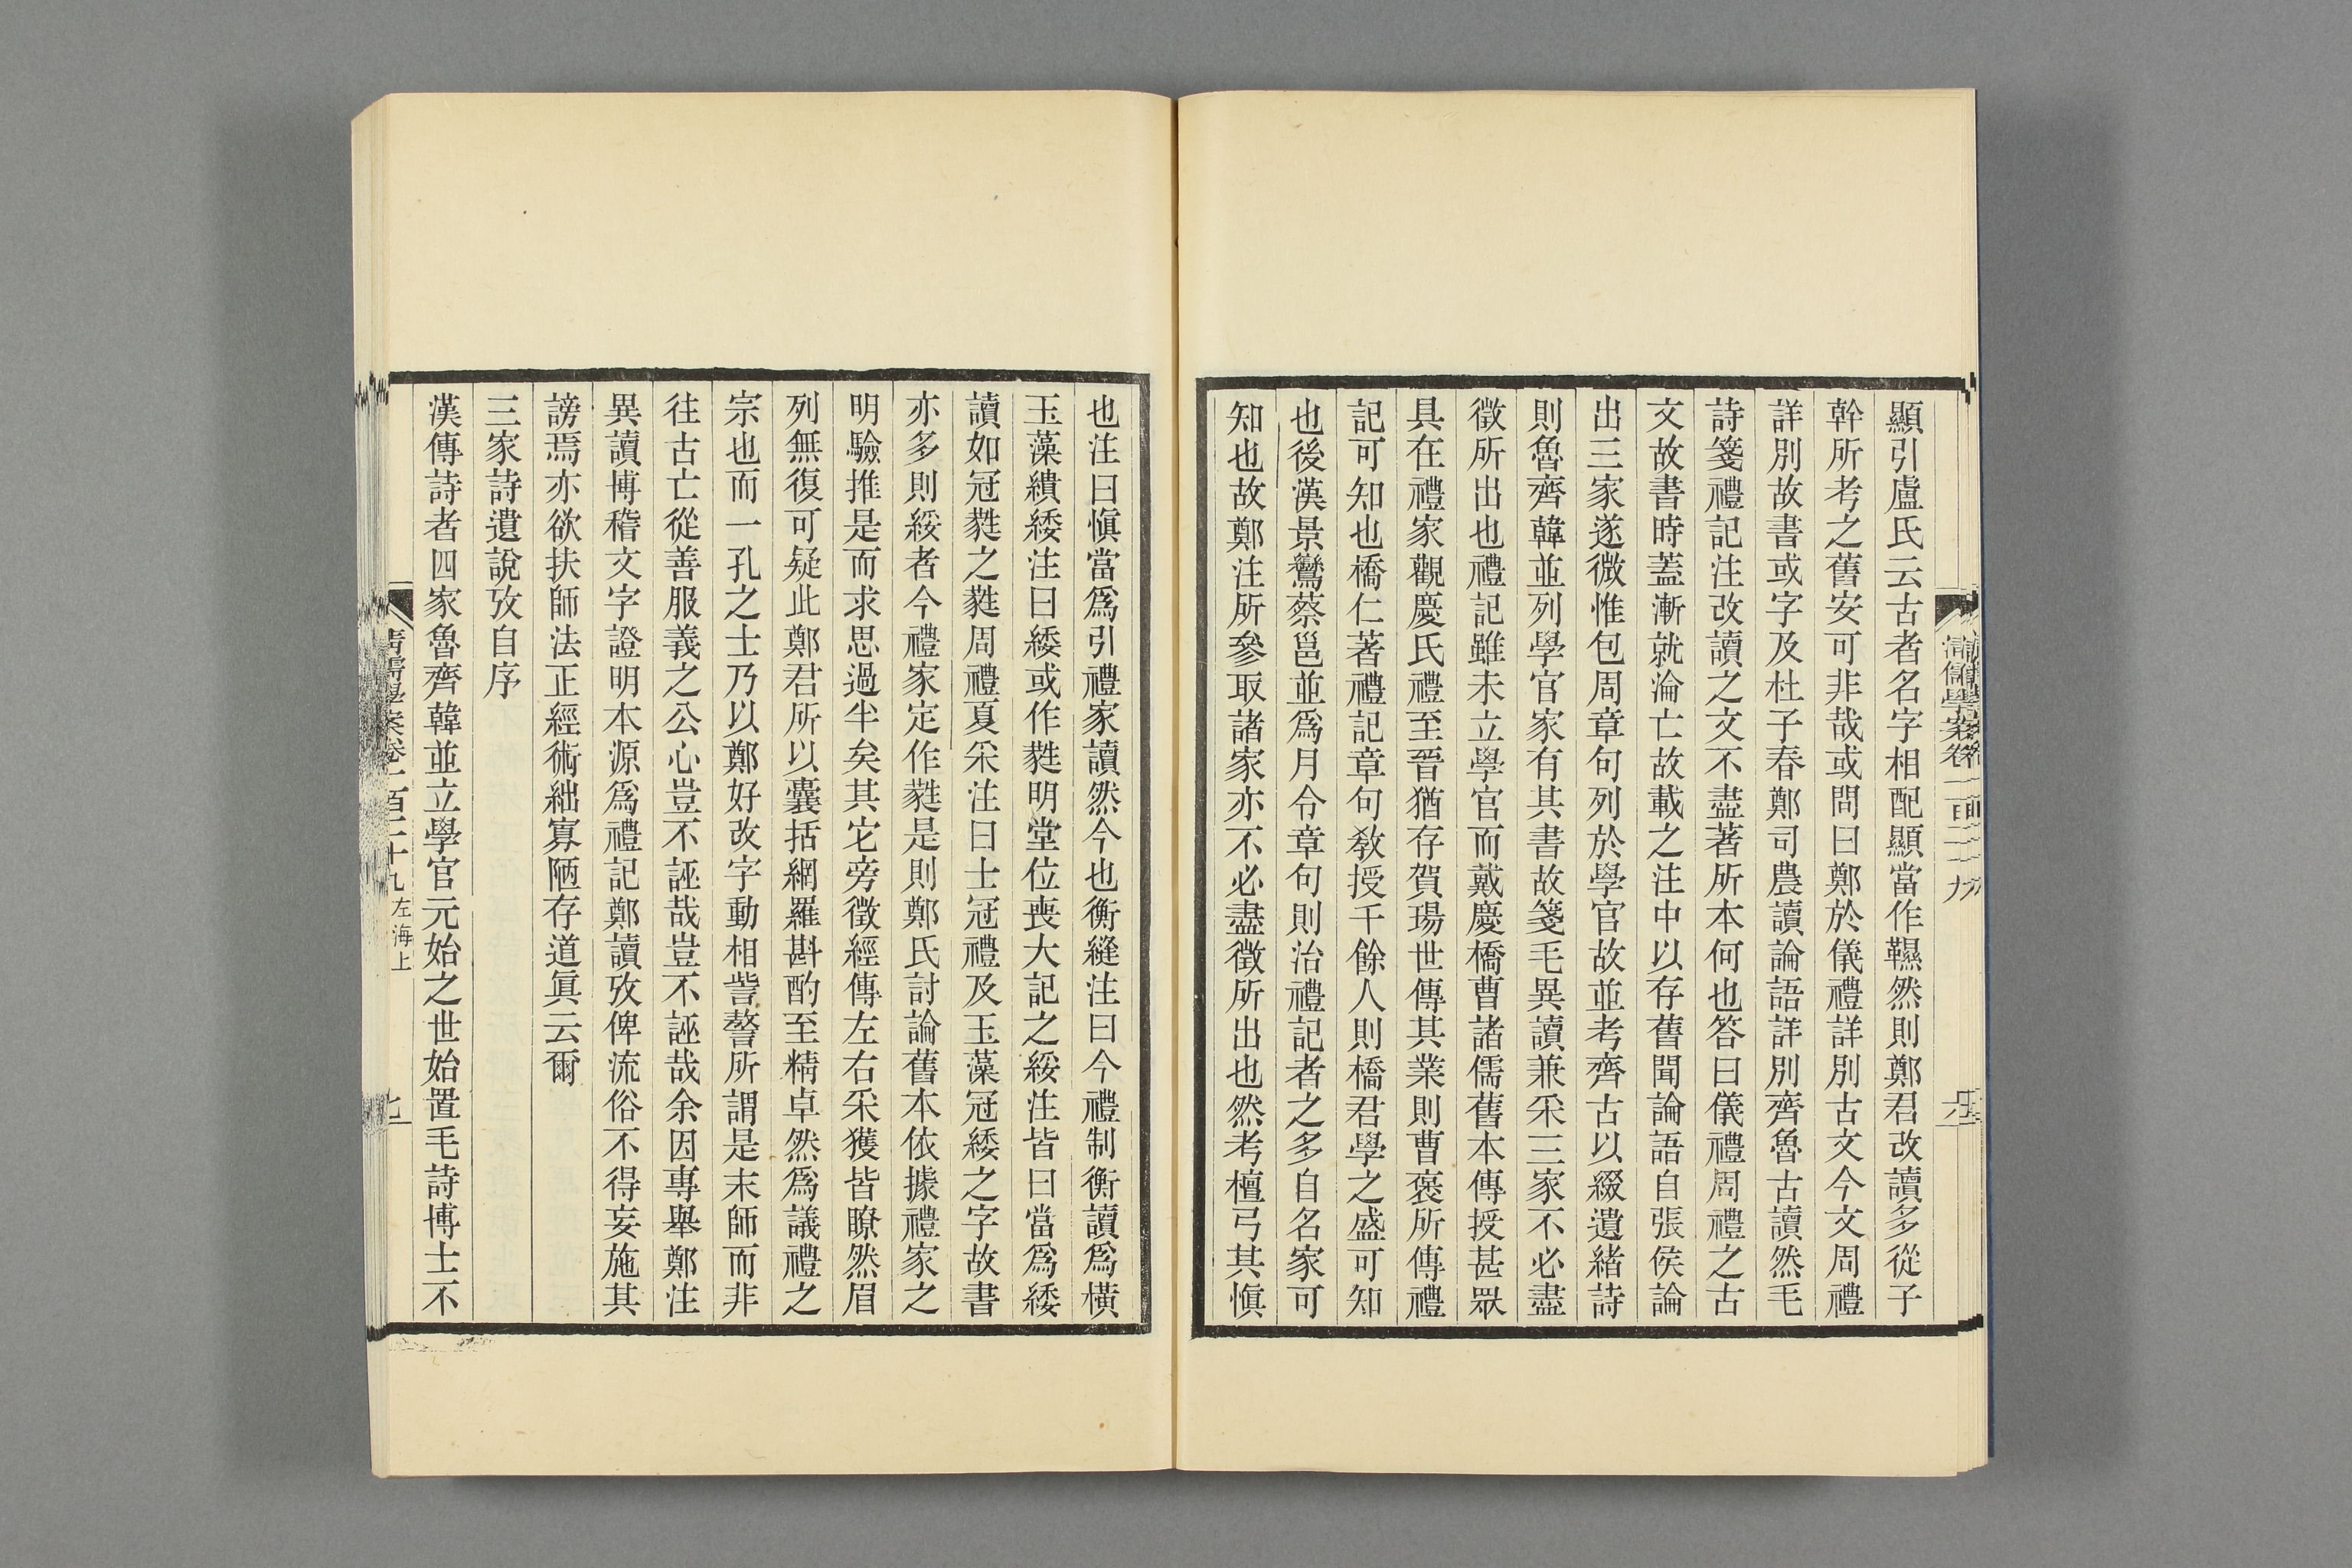 顯引盧氏云古者名字相配顯當作韅然則鄭君改讀多從子
幹所考之舊安可非哉或問曰鄭於儀禮詳別古文今文周禮
詳別故書或字及杜子春鄭司農讀論語詳別齊魯古讀然毛
詩箋禮記注改讀之文不盡著所本何也答曰儀禮周禮之古
文故書時蓋漸就淪亡故載之注中以存舊聞論語自張侯論
出三家遂微惟包周章句列於學官故並考齊古以綴遺緒詩
則魯齊韓並列學官家有其書故箋毛異讀兼采三家不必盡
徵所出也禮記雖未立學官而戴慶橋曹諸儒舊本傳授甚眾
具在禮家觀慶氏禮至晉猶存賀瑒世傳其業則曹褒所傳禮
記可知也橋仁著禮記章句敎授千餘人則橋君學之盛可知
也後漢景鸞蔡邕並爲月令章句則治禮記者之多自名家可
知也故鄭注所參取諸家亦不必盡徵所出也然考檀弓其愼
也注曰愼當爲引禮家讀然今也衡縫注曰今禮制衡讀爲橫
玉藻繢緌注曰緌或作蕤明堂位喪大記之綏注皆曰當爲緌
讀如冠蕤之蕤周禮夏采注曰士冠禮及玉藻冠緌之字故書
亦多則綏者今禮家定作蕤是則鄭氏討論舊本依據禮家之
明驗推是而求思過半矣其它旁徵經傳左右采獲皆瞭然眉
列無復可疑此鄭君所以囊括網羅斟酌至精卓然爲議禮之
宗也而一孔之士乃以鄭好改字動相訾謷所謂是末師而非
往古亡從善服義之公心豈不誣哉豈不誣哉余因專舉鄭注
異讀博稽文字證明本源爲禮記鄭讀攷俾流俗不得妄施其
謗焉亦欲扶師法正經術絀寡陋存道眞云爾
三家詩遺說攷自序
漢傳詩者四家魯齊韓並立學官元始之世始置毛詩博士不
清儒學案卷一百二十九 左海上